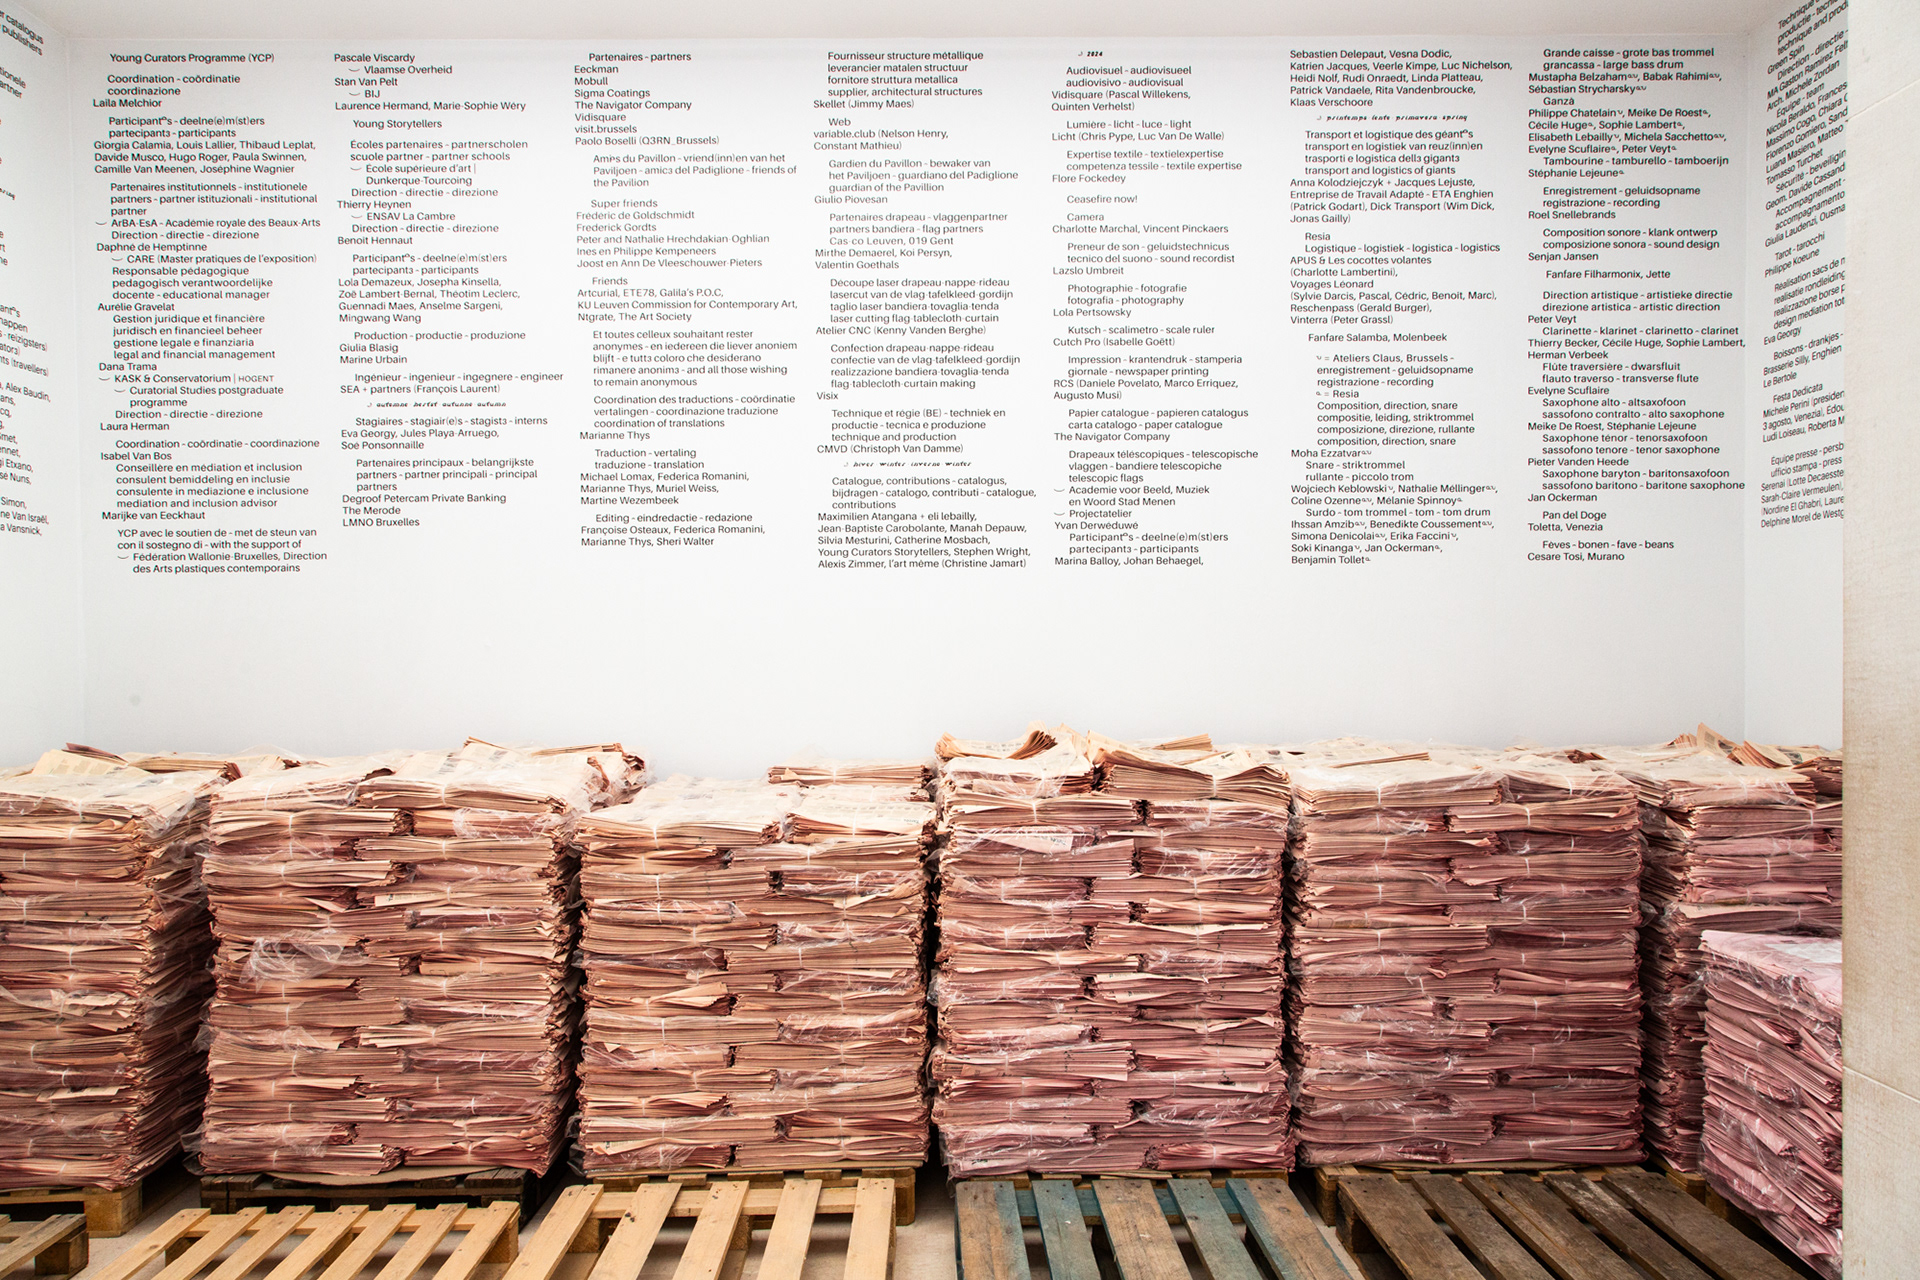 Young Curators Programme (YCP)
Coordination - coördinatie
coordinazione
Laila Melchior
Participantᵉˢ - deelne(e)m(st)ers
partecipantɜ - participants
Giorgia Calamia, Louis Lallier, Thibaud Leplat,
Davide Musco, Hugo Roger, Paula Swinnen,
Camille Van Meenen, Joséphine Wagnier
Partenaires institutionnels - institutionele
partners - partner istituzionali - institutional
partner
ArBA-EsA - Académie royale des Beaux-Arts
Direction - directie - direzione
Daphné de Hemptinne
CARE (Master pratiques de l'exposition)
Responsable pédagogique
pedagogisch verantwoordelijke
docente - educational manager
Aurélie Gravelat
Gestion juridique et financière
juridisch en financieel beheer
gestione legale e finanziaria
legal and financial management
Dana Trama
KASK & Conservatorium | HOGENT
Curatorial Studies postgraduate
programme
Direction - directie - direzione
Laura Herman
Coordination - coördinatie - coordinazione
Isabel Van Bos
Conseillère en médiation et inclusion
consulent bemiddeling en inclusie
consulente in mediazione e inclusione
mediation and inclusion advisor
Marijke van Eeckhaut
YCP avec le soutien de - met de steun van
con il sostegno di - with the support of
Fédération Wallonie-Bruxelles, Direction
des Arts plastiques contemporains
Pascale Viscardy
Vlaamse Overheid
Stan Van Pelt
BIJ
Laurence Hermand, Marie-Sophie Wéry
Young Storytellers
Écoles partenaires - partnerscholen
scuole partner - partner schools
École supérieure d'art |
Dunkerque-Tourcoing
Direction - directie - direzione
Thierry Heynen
ENSAV La Cambre
Direction - directie - direzione
Benoît Hennaut
Participantᵉˢ - deelne(e)m(st)ers
partecipantɜ - participants
Lola Demazeux, Josepha Kinsella,
Zoë Lambert-Bernal, Théotim Leclerc,
Guennadi Maes, Anselme Sargeni,
Mingwang Wang
Production - productie - produzione
Giulia Blasig
Marine Urbain
Ingénieur - ingenieur - ingegnere - engineer
SEA + partners (François Laurent)
automne herfst autunno autumn
Stagiaires - stagiair(e)s - stagistɜ - interns
Eva Georgy, Jules Playa-Arruego,
Soé Ponsonnaille
Partenaires principaux - belangrijkste
partners - partner principali - principal
partners
Degroof Petercam Private Banking
The Merode
LMNO Bruxelles
Partenaires - partners
Eeckman
Mobull
Sigma Coatings
The Navigator Company
Vidisquare
visit.brussels
Paolo Boselli (Q3RN_Brussels)
Amiᵉs du Pavillon - vriend(inn)en van het
Paviljoen - amicɜ del Padiglione - friends of
the Pavilion
Super friends
Frédéric de Goldschmidt
Frederick Gordts
Peter and Nathalie Hrechdakian-Oghlian
Ines en Philippe Kempeneers
Joost en Ann De Vleeschouwer-Pieters
Friends
Artcurial, ETE78, Galila's P.O.C,
KU Leuven Commission for Contemporary Art,
Ntgrate, The Art Society
Et toutes celleux souhaitant rester
anonymes - en iedereen die liever anoniem
blijft - e tuttɜ coloro che desiderano
rimanere anonimɜ - and all those wishing
to remain anonymous
Coordination des traductions - coördinatie
vertalingen - coordinazione traduzione
coordination of translations
Marianne Thys
Traduction - vertaling
traduzione - translation
Michael Lomax, Federica Romanini,
Marianne Thys, Muriel Weiss,
Martine Wezembeek
Editing - eindredactie - redazione
Françoise Osteaux, Federica Romanini,
Marianne Thys, Sheri Walter
Fournisseur structure métallique
leverancier matalen structuur
fornitore struttura metallica
supplier, architectural structures
Skellet (Jimmy Maes)
Web
variable.club (Nelson Henry,
Constant Mathieu)
Gardien du Pavillon - bewaker van
het Paviljoen - guardiano del Padiglione
guardian of the Pavillion
Giulio Piovesan
Partenaires drapeau - vlaggenpartner
partners bandiera - flag partners
Cas-co Leuven, 019 Gent
Mirthe Demaerel, Koi Persyn,
Valentin Goethals
Découpe laser drapeau-nappe-rideau
lasercut van de vlag-tafelkleed-gordijn
taglio laser bandiera-tovaglia-tenda
laser cutting flag-tablecloth-curtain
Atelier CNC (Kenny Vanden Berghe)
Confection drapeau-nappe-rideau
confectie van de vlag-tafelkleed-gordijn
realizzazione bandiera-tovaglia-tenda
flag-tablecloth-curtain making
Visix
Technique et régie (BE) - techniek en
productie - tecnica e produzione
technique and production
CMVD (Christoph Van Damme)
hiver winter inverno winter
Catalogue, contributions - catalogus,
bijdragen - catalogo, contributi - catalogue,
contributions
Maximilien Atangana + eli lebailly,
Jean-Baptiste Carobolante, Manah Depauw,
Silvia Mesturini, Catherine Mosbach,
Young Curators Storytellers, Stephen Wright,
Alexis Zimmer, l'art même (Christine Jamart)
2024
Audiovisuel - audiovisueel
audiovisivo - audiovisual
Vidisquare (Pascal Willekens,
Quinten Verhelst)
Lumière - licht - luce - light
Licht (Chris Pype, Luc Van De Walle)
Expertise textile - textielexpertise
competenza tessile - textile expertise
Flore Fockedey
Ceasefire now!
Camera
Charlotte Marchal, Vincent Pinckaers
Preneur de son - geluidstechnicus
tecnico del suono - sound recordist
Lazslo Umbreit
Photographie - fotografie
fotografia - photography
Lola Pertsowsky
Kutsch - scalimetro - scale ruler
Cutch Pro (Isabelle Goëtt)
Impression - krantendruk - stamperia
giornale - newspaper printing
RCS (Daniele Povelato, Marco Erriquez,
Augusto Musi)
Papier catalogue - papieren catalogus
carta catalogo - paper catalogue
The Navigator Company
Drapeaux téléscopiques - telescopische
vlaggen - bandiere telescopiche
telescopic flags
Academie voor Beeld, Muziek
en Woord Stad Menen
Projectatelier
Yvan Derwéduwé
Participantᵉˢ - deelne(e)m(st)ers
partecipantɜ - participants
Marina Balloy, Johan Behaegel,
Sebastien Delepaut, Vesna Dodic,
Katrien Jacques, Veerle Kimpe, Luc Nichelson,
Heidi Nolf, Rudi Onraedt, Linda Platteau,
Patrick Vandaele, Rita Vandenbroucke,
Klaas Verschoore
printemps lente primavera spring
Transport et logistique des géantᵉˢ
transport en logistiek van reuz(inn)en
trasporti e logistica dellɜ gigantɜ
transport and logistics of giants
Anna Kolodziejczyk + Jacques Lejuste,
Entreprise de Travail Adapté - ETA Enghien
(Patrick Godart), Dick Transport (Wim Dick,
Jonas Gailly)
Resia
Logistique - logistiek - logistica - logistics
APUS & Les cocottes volantes
(Charlotte Lambertini),
Voyages Léonard
(Sylvie Darcis, Pascal, Cédric, Benoit, Marc),
Reschenpass (Gerald Burger),
Vinterra (Peter Grassl)
Fanfare Salamba, Molenbeek
= Ateliers Claus, Brussels -
enregistrement - geluidsopname
registrazione - recording
= Resia
Composition, direction, snare
compositie, leiding, striktrommel
composizione, direzione, rullante
composition, direction, snare
Moha Ezzatvar
Snare - striktrommel
rullante - piccolo trom
Wojciech Keblowski, Nathalie Méllinger,
Coline Ozenne, Mélanie Spinnoy
Surdo - tom trommel - tom - tom drum
Ihssan Amzib, Benedikte Coussement,
Simona Denicolai, Erika Faccini,
Soki Kinanga, Jan Ockerman,
Benjamin Tollet
Grande caisse - grote bas trommel
grancassa - large bass drum
Mustapha Belzaham, Babak Rahimi,
Sébastian Strycharsky
Ganzá
Philippe Chatelain, Meike De Roest,
Cécile Huge, Sophie Lambert,
Elisabeth Lebailly, Michela Sacchetto,
Evelyne Scuflaire, Peter Veyt
Tambourine - tamburello - tamboerijn
Stéphanie Lejeune
Enregistrement - geluidsopname
registrazione - recording
Roel Snellebrands
Composition sonore - klank ontwerp
composizione sonora - sound design
Senjan Jansen
Fanfare Filharmonix, Jette
Direction artistique - artistieke directie
direzione artistica - artistic direction
Peter Veyt
Clarinette - klarinet - clarinetto - clarinet
Thierry Becker, Cécile Huge, Sophie Lambert,
Herman Verbeek
Flûte traversière - dwarsfluit
flauto traverso - transverse flute
Evelyne Scuflaire
Saxophone alto - altsaxofoon
sassofono contralto - alto saxophone
Meike De Roest, Stéphanie Lejeune
Saxophone ténor - tenorsaxofoon
sassofono tenore - tenor saxophone
Pieter Vanden Heede
Saxophone baryton - baritonsaxofoon
sassofono baritono - baritone saxophone
Jan Ockerman
Pan del Doge
Toletta, Venezia
Fèves - bonen - fave - beans
Cesare Tosi, Murano